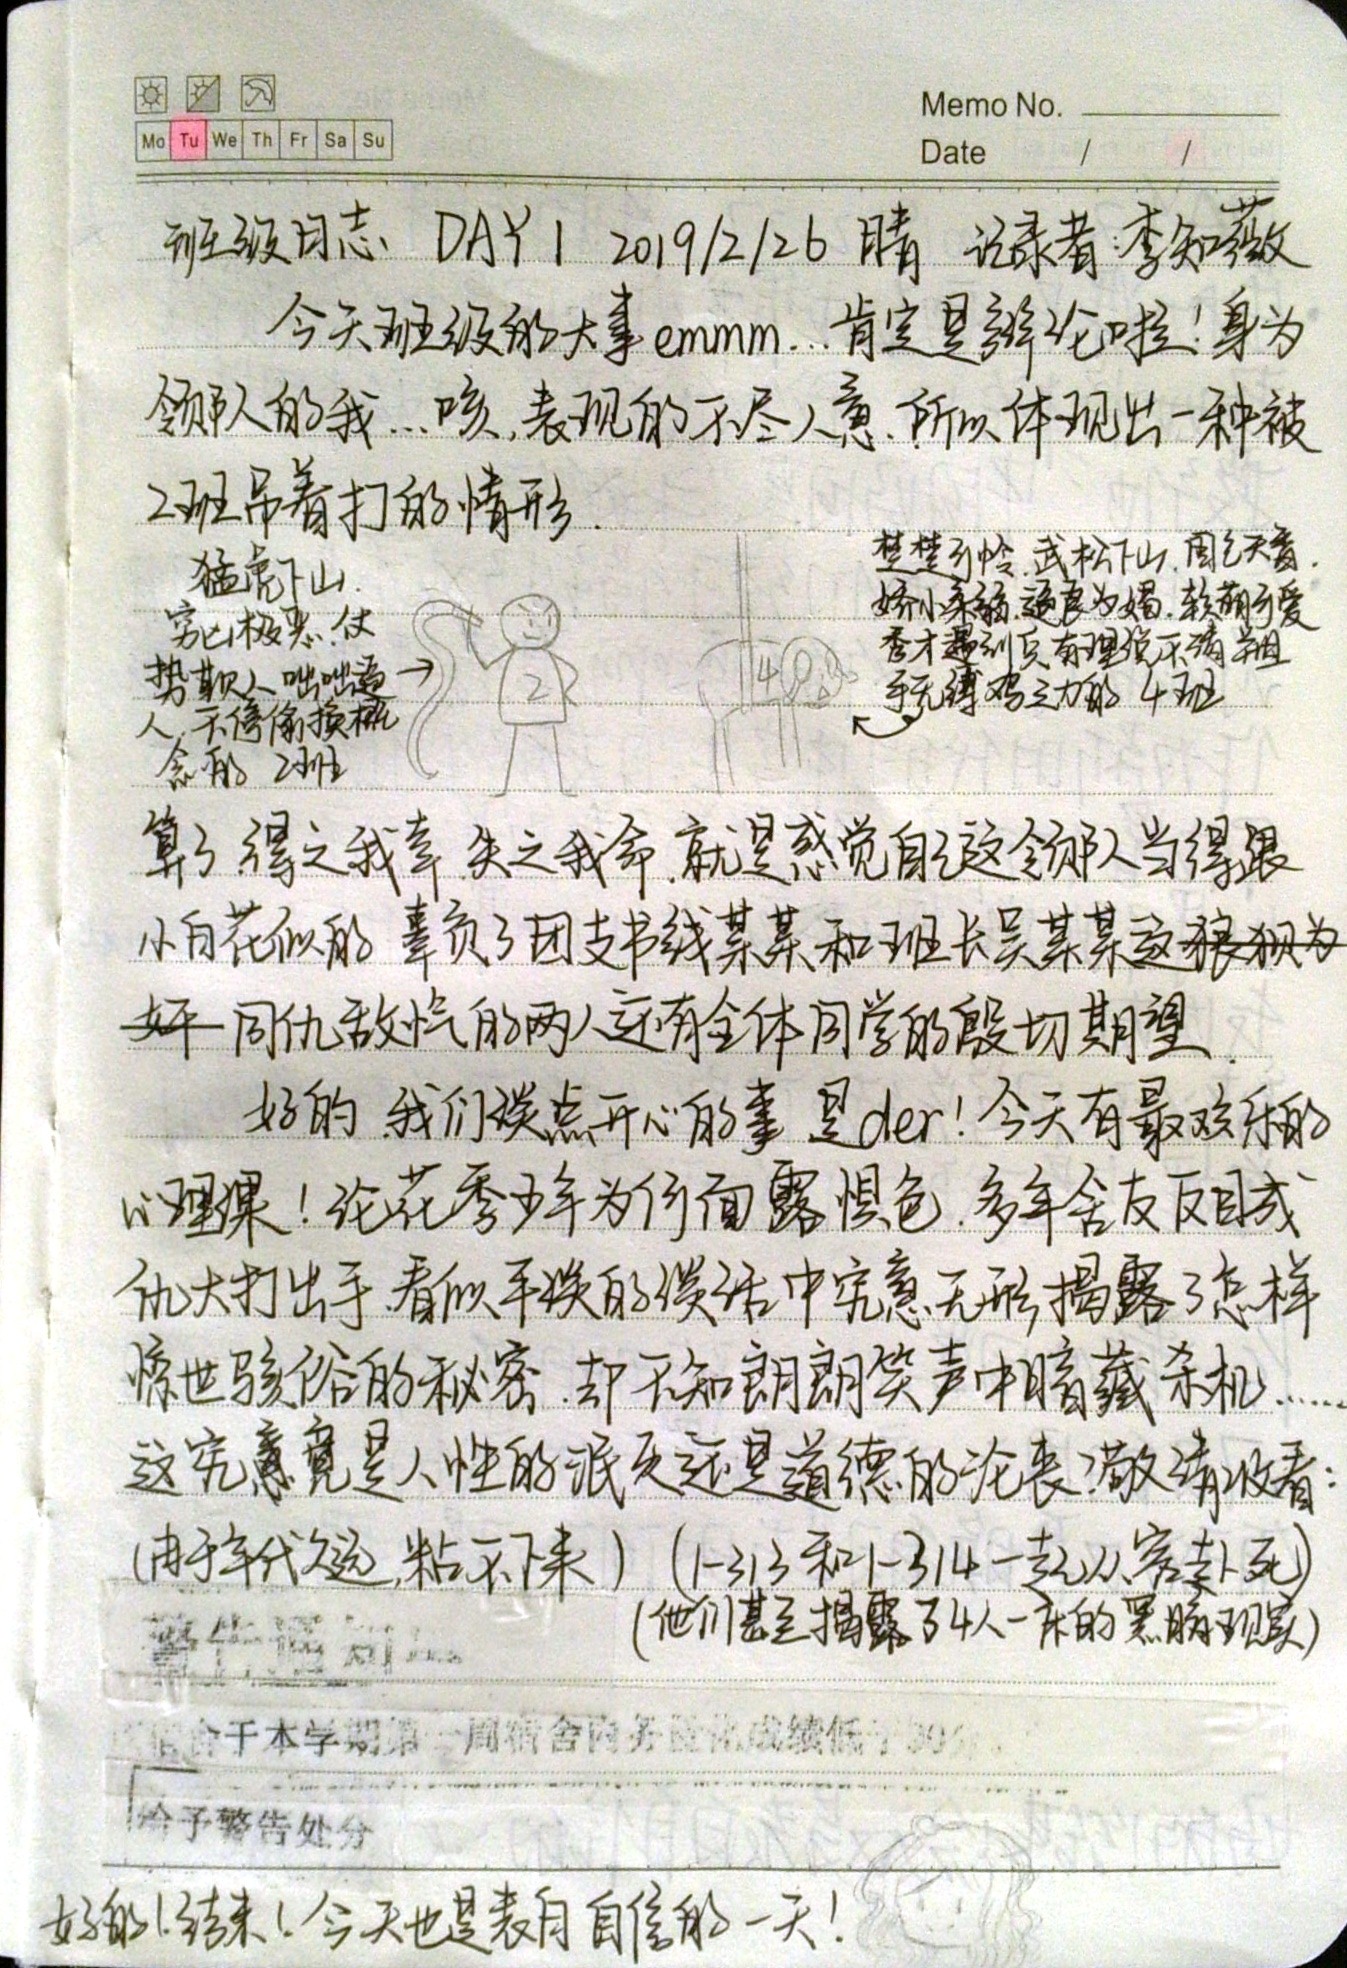 Memo No.
Mo Tu We Th Fr Sa Su
Date / /
班级日志 DAY1 2019/2/26 晴 记录者:李知薇
今天班级的大事emmm...肯定是辩论啦!身为
领队的我...咳,表现的不尽人意.所以体现出一种被
2班吊着打的情形.
猛虎下山.
穷凶极恶.仗
势欺人 咄咄逼
人.不停偷换概
念的 2班
2
4
楚楚可怜.武松下山.国色天香.
娇小柔弱.逼良为娼.软萌可爱
秀才遇到兵有理说不清 并且
手无缚鸡之力的 4班
算了.得之我幸.失之我命.就是感觉自己这领队当得跟
小白花似的 辜负了团支书钱某某和班长吴某某这狼狈为
奸 同仇敌忾的两人还有全体同学的殷切期望.
好的.我们谈点开心的事 是der!今天有最欢乐的
心理课!论花季少年为何面露惧色.多年舍友反目成
仇大打出手.看似平淡的谈话中究竟无形揭露了怎样
惊世骇俗的秘密.却不知朗朗笑声中暗藏杀机......
这究竟是人性的泯灭还是道德的沦丧?敬请收看:
(由于年代久远,粘不下来) (1-313和1-314一起从容赴死)
(他们甚至揭露了4人一床的黑暗现实)
警告通知
宿舍于本学期第一周宿舍内务评比成绩低于
给予警告处分
好的!结束!今天也是表白自信的一天!